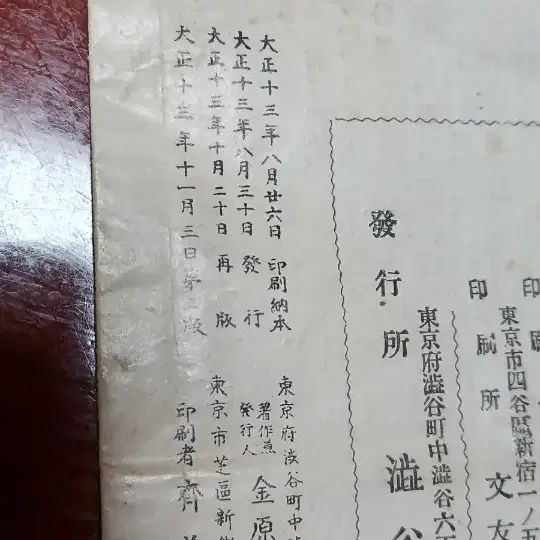 大正十三年八月廿六日印刷納本
大正十三年八月三十日發行
大正十三年十月二十日再版
大正十三年十一月三日第三版
東京府渋谷町中
著作兼
發行人
金原
東京市芝區新
印刷者齊
印刷所
東京市四谷區新宿一ノ五
文友
發行所
東京府澁谷町中澁谷六
澁谷